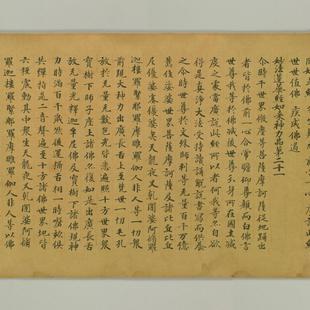 世世值佛 疾成佛道
妙法蓮華經如來神力品第二十一
尒時千世界微塵等菩薩摩訶薩從地踊出
者皆於佛前一心合掌瞻仰尊顏而白佛言
世尊我等於佛滅後世尊分身所在國土滅
度之處當廣說此經所以者何我等亦自欲
得是真淨大法受持讀誦解說書寫而供養
之尒時世尊於文殊師利等無量百千萬億
舊住娑婆世界菩薩摩訶薩及諸比丘比丘
尼優婆塞優婆夷天龍夜叉乾闥婆阿脩羅
迦樓羅緊那羅摩睺羅伽人非人等一切衆
前現大神力出廣長舌上至梵世一切毛孔
放於無量無數色光皆悉遍照十方世界衆
寶樹下師子座上諸佛亦復如是出廣長舌
放無量光釋迦牟尼佛及寶樹下諸佛現神
力時滿百千歲然後還攝舌相一時謦欬俱
共彈指是二音聲遍至十方諸佛世界地皆
六種震動其中衆生天龍夜叉乾闥婆阿脩
羅迦樓羅緊那羅摩睺羅伽人非人等以佛